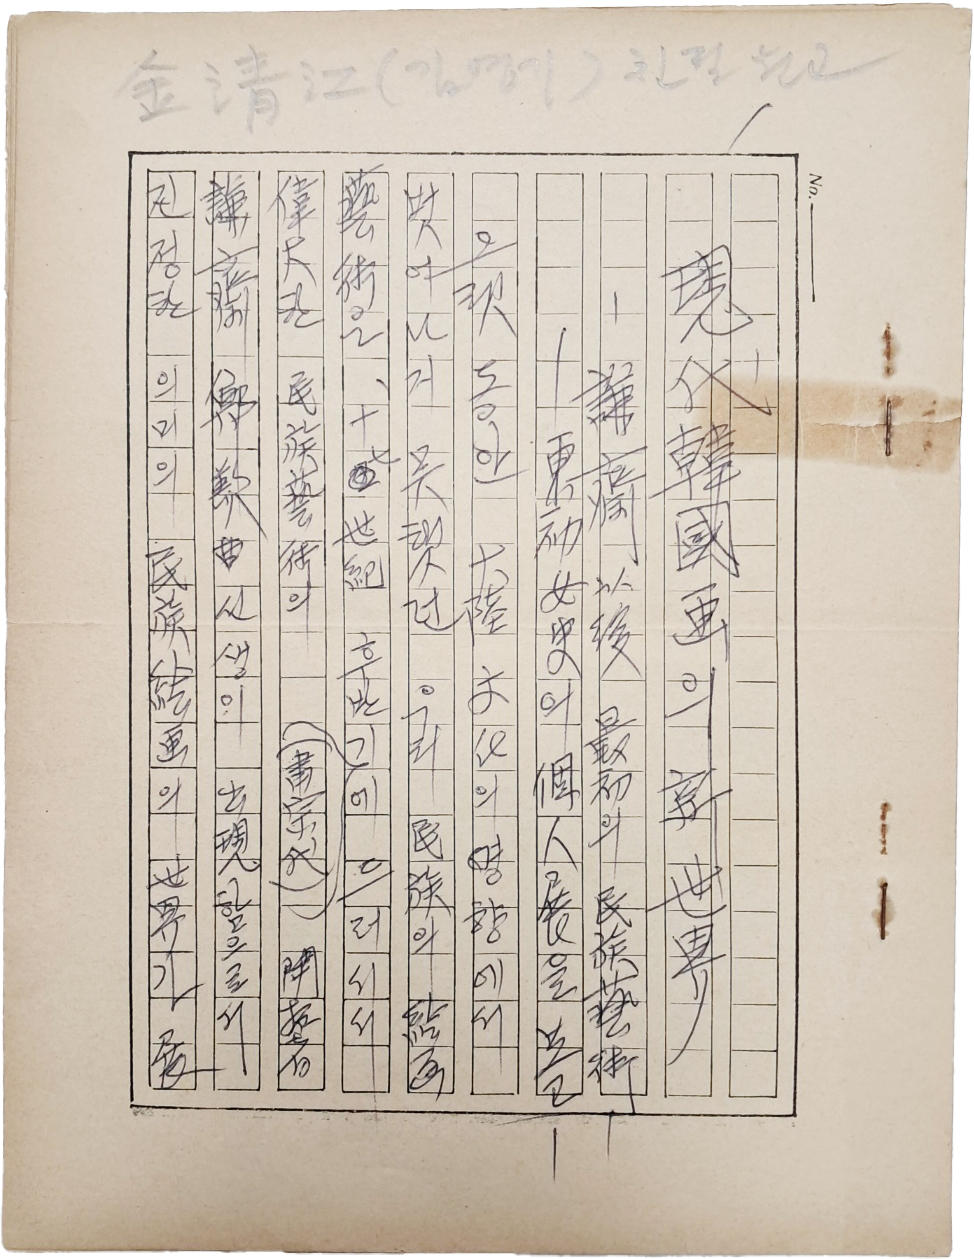 金清江(김영기) 친필 원고
No.
現代韓國画의 新世界
― 謙齋 以後 最初의 民族藝術 ―
― 東初女史의 個人展을 보고 ―
오랫동안 大陸 文化의 영향에서
벗어나지 못했던 우리 民族의 絵画
藝術은、十八世紀 후반기에 이러서서
偉大한 民族藝術의 (書宗代) 開拓者
謙齋 鄭敾 선생의 出現함으로서
진정한 의미의 民族絵画의 世界가 展